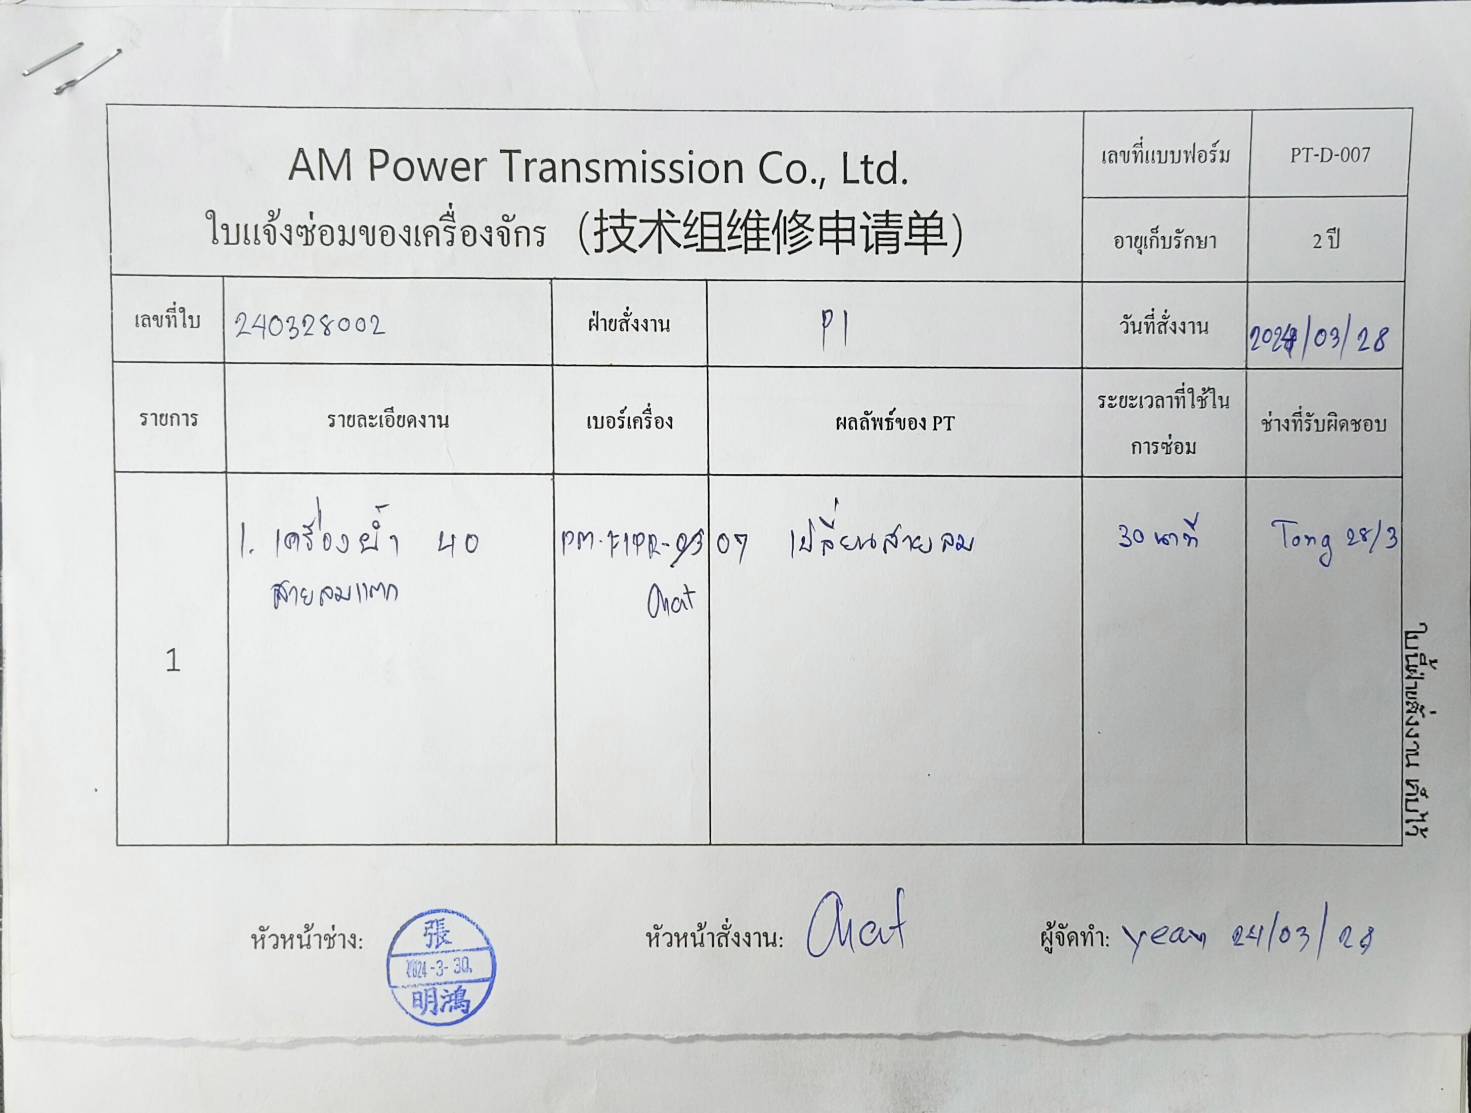 AM Power Transmission Co., Ltd.
ใบแจ้งซ่อมของเครื่องจักร (技术组维修申请单)
เลขที่แบบฟอร์ม PT-D-007
อายุเก็บรักษา 2 ปี
เลขที่ใบ 240328002 ฝ่ายสั่งงาน P1 วันที่สั่งงาน 2024/03/28
รายการ รายละเอียดงาน เบอร์เครื่อง ผลลัพธ์ของ PT ระยะเวลาที่ใช้ใน การซ่อม ช่างที่รับผิดชอบ
1
1. เครื่องย้ำ 40 07 เปลี่ยนสายลม 30 นาที Tong 28/3
สายลมแตก
ใบนี้ฝ่ายสั่งงาน เก็บไว้
หัวหน้าช่าง: 張 2024-3-30. 明鴻
หัวหน้าสั่งงาน:
ผู้จัดทำ: yean 24/03/28